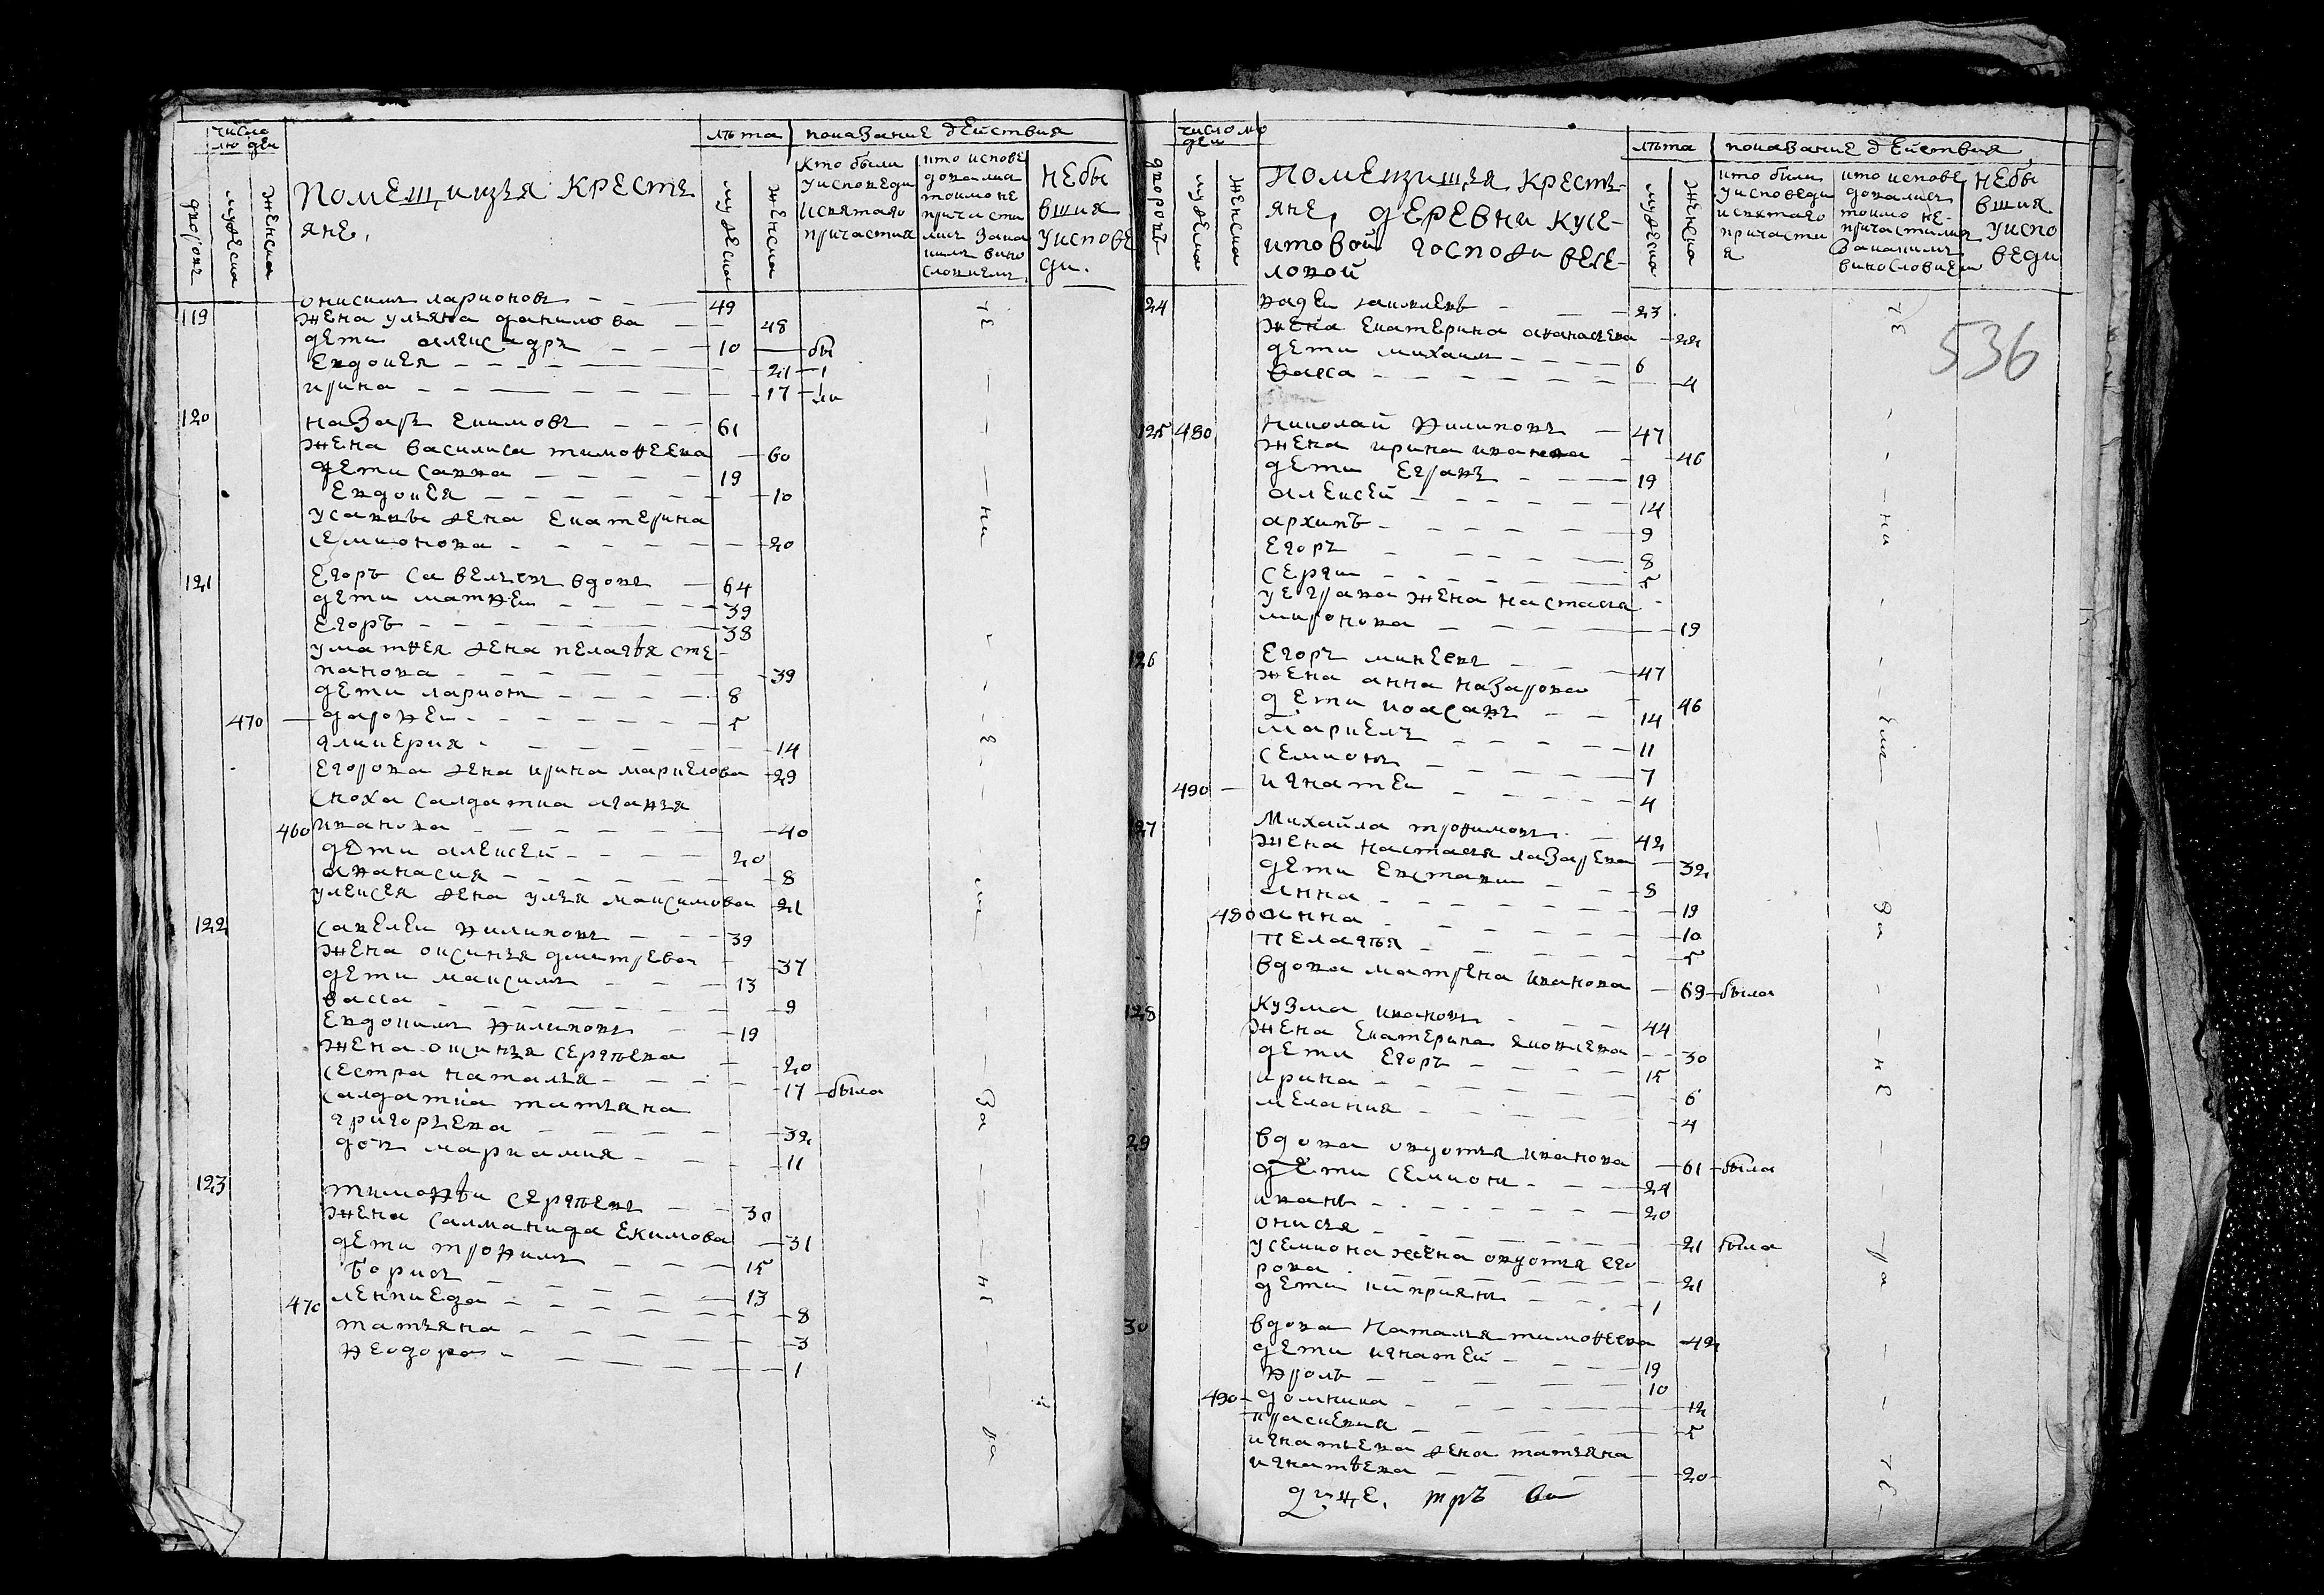 число людеи
дворовъ
мужеска
женска
помещицкя кресть
яне,
лѣта
мужеска
женска
показание действия
кто были
у исповеди
и святаго
причастия
кто испове
довалися
токмо не
причасти
лись зака
кимъ вино
словиемъ
небы
вшия
у испове
ди.
119 онисимъ ларионовъ 49
жена ульяна данилова 48
дети александръ 10 бы
евдокея 21
ирина 17 ли
120 назаръ екимовъ 61
жена василиса тимофеева 60
дети савва 19
евдокея 10
у саввы жена екатерина
семионова 20
121 егоръ савельевъ вдовъ 64
дети матфеи 39
егоръ 38
у матфея жена пелагѣя сте
панова 39
дети ларионъ 8
470 дарофеи 5
гликерия 14
егорова жена ирина маркелова 29
сноха салдатка агафья
460 иванова 40
дети алексей 20
афанасия 8
у алексея жена улья максимова 21
122 савелеи филиповъ 39
жена оксинья дмитрева 37
дети максимъ 13
васса 9
евдокимъ филиповъ 19
жена оксинья сергѣева 20
сестра наталья 17 была
салдатка татьяна
григорьева 32
дочь мариамия 11
123 тимофѣи сергѣевъ 30
жена саламанида екимова 31
дети трофимъ 15
борисъ 13
470 8
татьяна 3
феодора 1
число людеи
дворовъ
мужеска
женска
помещицкя кресть
яне, деревни кусе
китовой госпожи весе
ловой
лѣта
мужеска
женска
показание действия
кто были
у исповеди
и святаго
причасти
я
кто испове
довались
токмо не
причастились
закакимъ
винословием
небы
вшия
у испо
веди
536
124 фадеи яковлевъ 23
жена екатерина афанасьева 22
дети михаилъ 6
васса 4
125 480 николай филиповъ 47
жена ирина иванова 46
дети евграфъ 19
алексей 14
архипъ 9
егоръ 8
сергии 5
у евграфа жена настасия
миронова 19
126 егоръ минеевъ 47
жена анна назарова 46
дети иоасафъ 14
маркелъ 11
семионъ 7
490 игнатеи 4
127 михайла трофимовъ 42
жена настасия лазарева 32
дети евстафии 8
анна 19
480 анна 10
пелагѣя 5
вдова матрена иванова 69 была
128 кузма ивановъ 44
жена екатерина яковлева 30
дети егоръ 15
ирина 6
мелания 4
29 вдова овдотья иванова 61 была
дети семионъ 24
иванъ 20
онисья 21 была
у семиона жена овдотья его
рова 21
дети киприянъ 1
30 вдова наталья тимофеева 42
дети игнатей 19
фролъ 10
490 домника 12
прасковия 5
игнатьева жена татьяна
игнатѣева 20